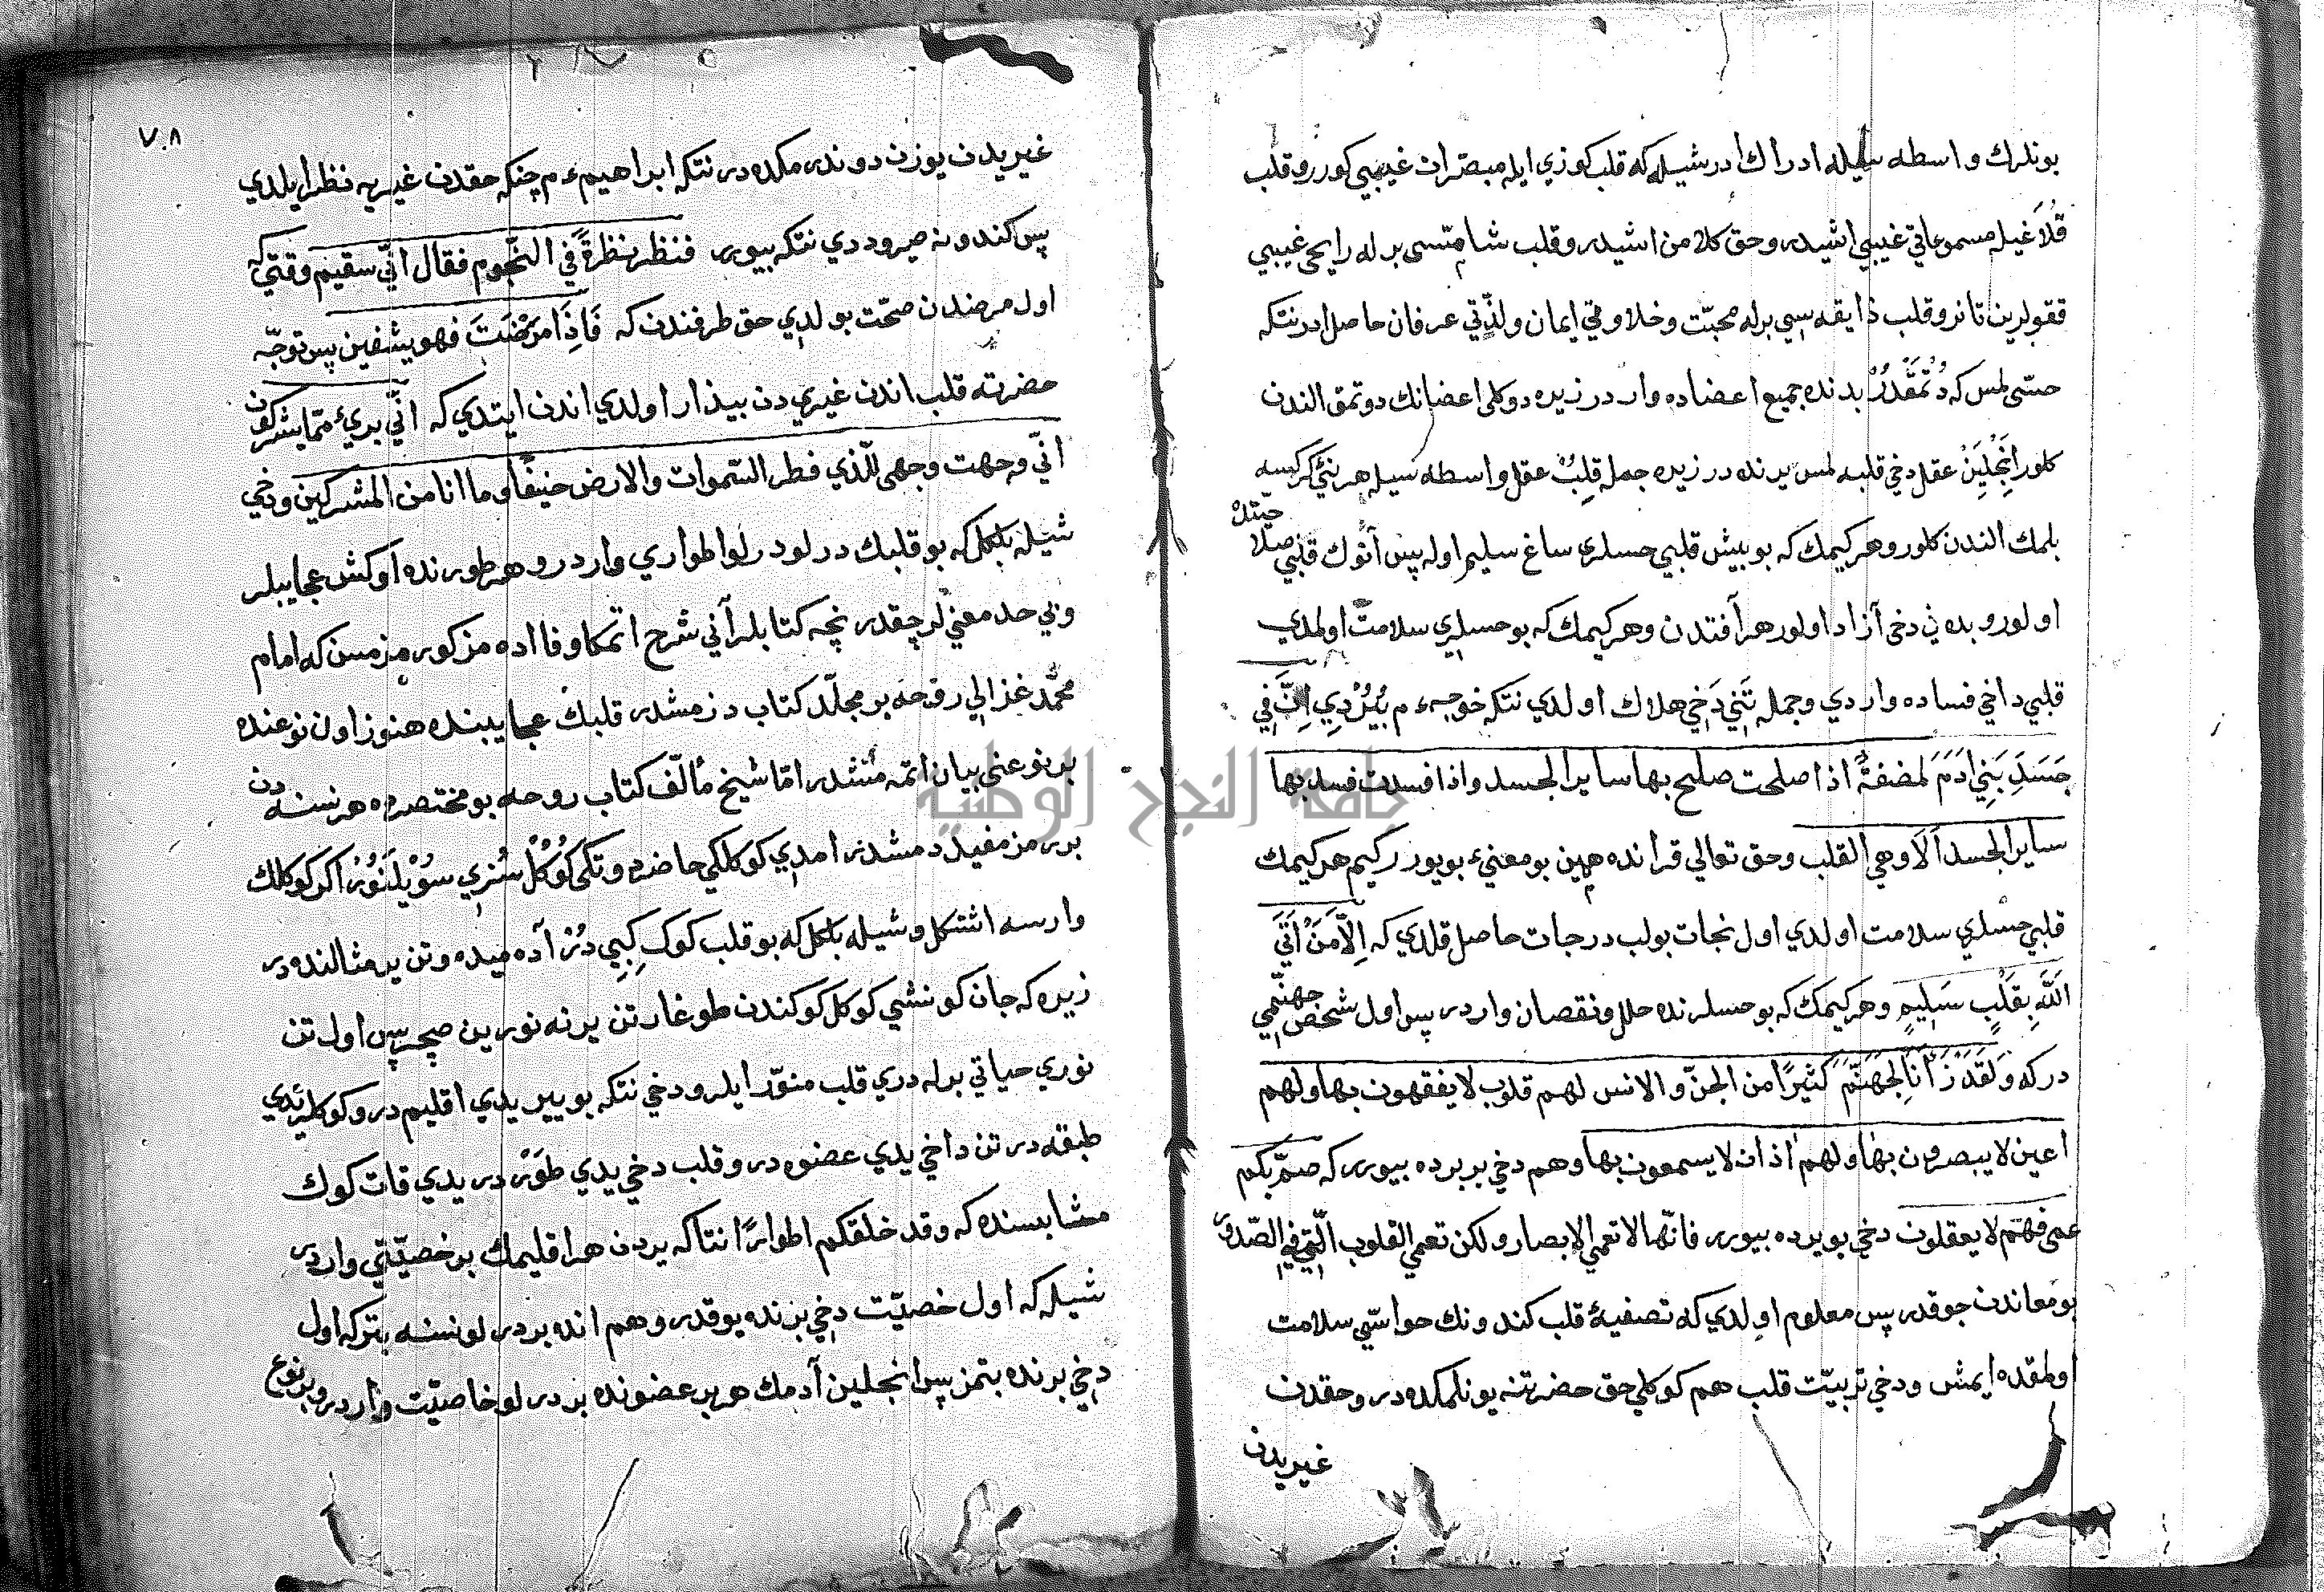 بونلرك واسطه سيله ادراك ادر شيله كه قلب كوزي ايله مبصرات غيبيي كورر و قلب
قلاغيله مسموعاتي غيبيي اشيدر و حق كلامن اشيدر و قلب شامّسى برله رايحى غيبيي
قوقولرين تانر و قلب ذايقه سيي برله محبّت و حلاوتي ايمان و لذّتي عرفان حاصل ادر نتكه
حسّى لمس كه دُتمَقدُرْ بدنده جميع اعضاده وار در زيره دوكلى اعضانك دوتمق الندن
كلور انجلين عقل دخي قلبه لمس يرنده در زيره جمله قلبْ عقل واسطه سيله هر
بلمك الندن كلور و هر كيمك كه بو بيش قلبي حسلرى ساغ سليم اوله پس انوك قلبي
اولور و بدني دخى آزاد اولور هر آفتدن و هر كيمك كه بو حسلري سلامت اولمدي
قلبي داخي فساده واردي و جمله تني دخي هلاك اولدي نتكه خوجه م بُيُرْدي اِنَّ فِي
جَسَدِ بَنِي ادَمَ لمضغةً اذا صلحت صلح بها ساير الجسد و اذا فسدت فسد بها
ساير الجسد اَلَا وهي القلب و حق تعالي قرانده همين بو معنيء بويورر كيم هر كيمك
قلبي حسلري سلامت اولدي اول نجات بولب درجات حاصل قلدي كه اِلّا مَنْ اَتَى
اَللّٰهَ بِقَلْبٍ سَلِيمٍ و هر كيمك كه بو حسلرنده خلل و نقصان وار در پس اول شخص جهنّمي
در كه وَلَقَدْ ذَرَأنَا لِجَهَنَّمَ كَثيرًا من الجنّ و الانس لهم قلوب لا يفقهون بها و لهم
اعين لا يبصرون بها و لهم اذان لا يسمعون بها و هم دخي بر يرده بيورر كه صمّ بكم
عمى فهم لا يعقلون دخي بو يرده بيورر فانّها لا تعمي الابصار و لكن تعمي القلوب الّتي في الصّدور
بو معاندن چوقدر پس معلوم اولدي كه تصفيهٔ قلب كندونك حواسّي سلامت
اولمقده ايمش و دخي تربيّت قلب هم كوكلي حق حضرتنه يونلمكده در و حقدن
غيريدن
٧٠٨
غيريدن يوزن دوندرمكده در نتكه ابراهيم ءم چنكه حقدن غيريه نظر ايلدي
پس كندونه صيرو ددي نتكه بيورر فنظر نظرةً في النّجوم فقال انّي سقيم وقتي كه
اول مرضدن صحّت بولدي حق طرفندن كه فَاِذَا مَرَضْتَ فهو يشفين پس توجّه
حضرته قلب اندن غيري دن بيذار اولدي اندن ايتدي كه انّي بريءٌ ممّا يشركون
انّي وجهت وجهى للّذي فطر السّموات والارض حنيفًا و ما انا من المشركين و دخي
شيله بلكل كه بو قلبك در لو در لو اطواري وار در و هر طورنده اوكش عجايبلر
و بي حد معني لر چقدر نچه كتابلر آني شرح اتمكا وفا اده مز كورمز مسن كه امام
محمّد غزالي روحه بر مجلّد كتاب دزمشدر قلبك عجايبنده هنوز اون نوعنده
بر نوعني بيان اتمه مشدر امّا شيخ مألّف كتاب روحه بو مختصرده هر نسنه دن
بر رمز مفيد دمشدر امدي كوكلكي حاضر دوتكى كُوكُلْ سُزي سُوْيلَنُوْر اكر كوكلك
وارسه اشتكل و شيله بلكل كه بو قلب كوك كبي دُرْ آده ميده و تن ير مثالنده در
زيره كه جان كونشي كوكل كوكندن طوغار تن يرنه نورين صچر پس اول تن
نوري حياتي برله دري قلب منوّر ايلر و دخي نتكه بو يير يدي اقليم در و كوكلر يدي
طبقه در تن داخي يدي عضوه در و قلب دخي يدي طوَرْ در يدي قات كوك
مشابسنده كه و قد خلقكم اطوارًا نتاكه يردن هر اقليمك بر خصيّتي واردر
شيله كه اول خصيّت دخي برنده يوقدر و هم انده بر در لو نسنه بتر كه اول
دخي برنده بتمز پس انجلين آدمك هر بر عضونده بر در لو خاصيّت وار در و بر نوع